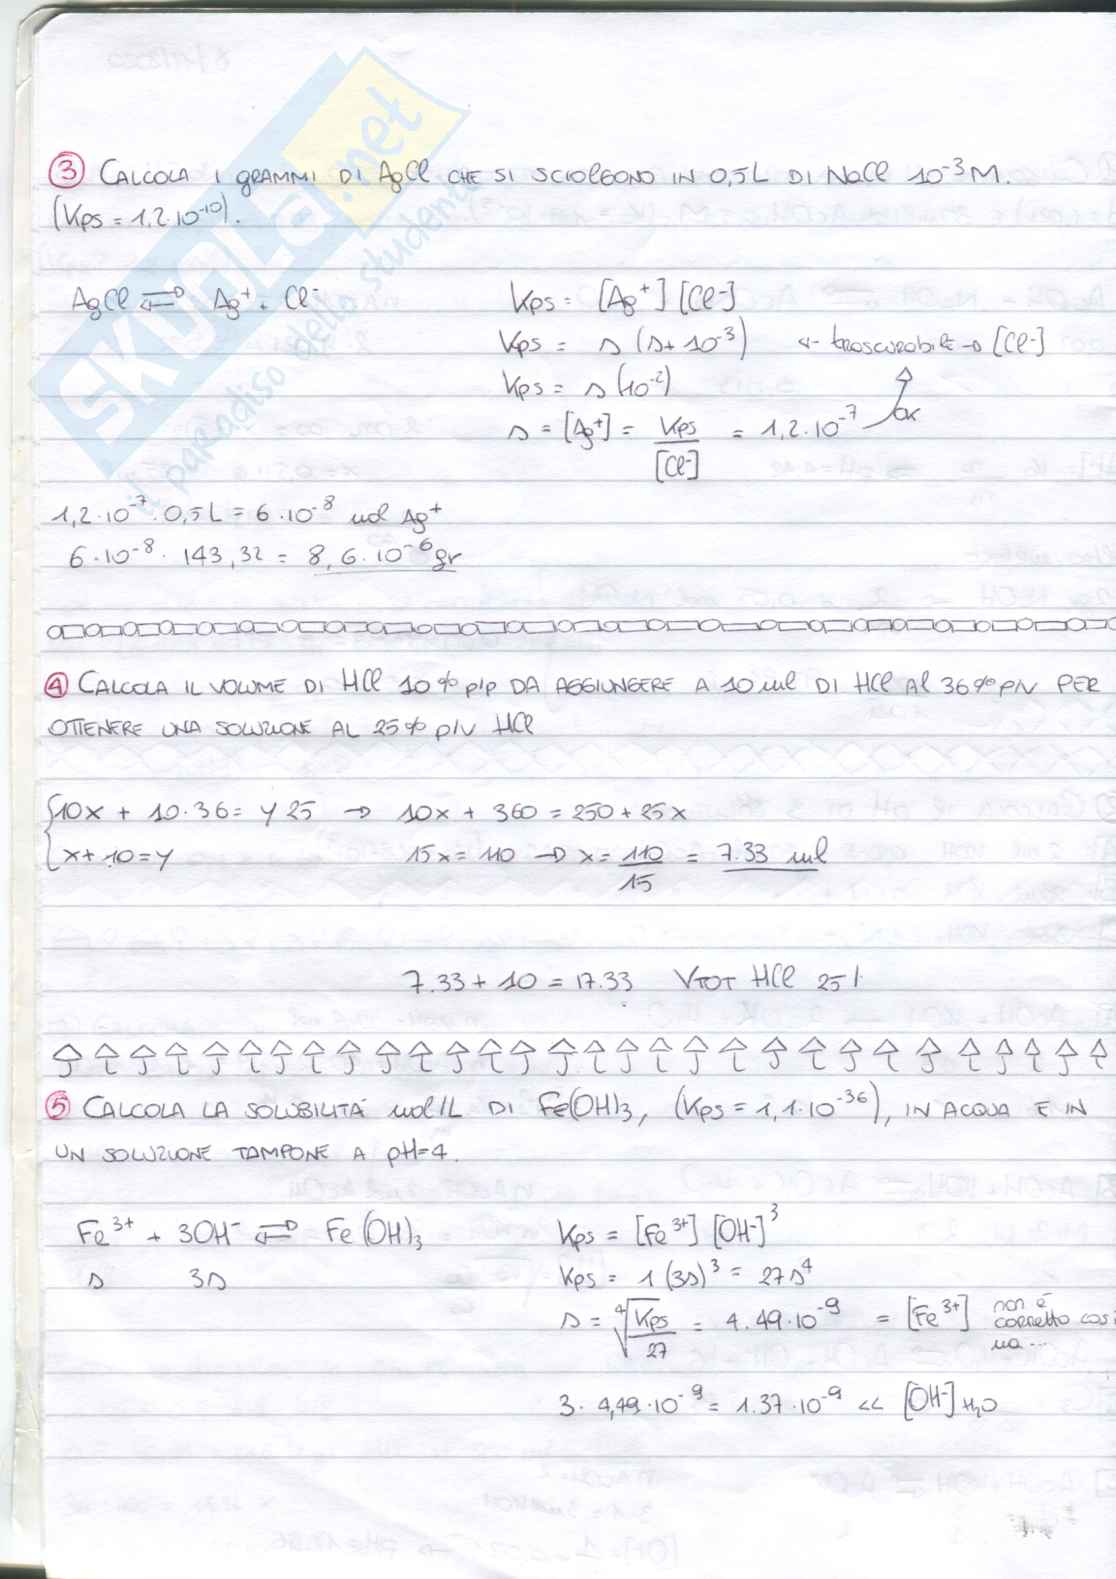 ③ CALCOLA I GRAMMI DI AgCl CHE SI SCIOLGONO IN 0,5L DI NaCl 10⁻³M.
(Kps = 1,2·10⁻¹⁰).
AgCl ⇌ Ag⁺ + Cl⁻
Kps = [Ag⁺][Cl⁻]
Kps = s (s+10⁻³) ← trascurabile → [Cl⁻]
Kps = s(10⁻²)
s = [Ag⁺] = Kps/[Cl⁻] = 1,2·10⁻⁷ ok
1,2·10⁻⁷·0,5L = 6·10⁻⁸ mol Ag⁺
6·10⁻⁸ · 143,32 = 8,6·10⁻⁶ gr
④ CALCOLA IL VOLUME DI HCl 10% p/p DA AGGIUNGERE A 10 ml DI HCl Al 36% p/v PER
OTTENERE UNA SOLUZIONE AL 25% p/v HCl
{10x + 10·36 = y 25 → 10x + 360 = 250 + 25x
x + 10 = y 15x = 110 → x = 110/15 = 7.33 ml
7.33 + 10 = 17.33 VTOT HCl 25%
⑤ CALCOLA LA SOLUBILITÀ mol/L DI Fe(OH)₃, (Kps = 1,1·10⁻³⁶), IN ACQUA E IN
UN SOLUZIONE TAMPONE A pH=4.
Fe³⁺ + 3OH⁻ ⇌ Fe(OH)₃ Kps = [Fe³⁺][OH⁻]³
s 3s Kps = 1(3s)³ = 27s⁴
s = ⁴√Kps/27 = 4.49·10⁻⁹ = [Fe³⁺] non è corretto così ma ...
3· 4,49·10⁻⁹ = 1.37·10⁻⁹ << [OH⁻] H₂O
SKUOLA.net
il paradiso dello studente